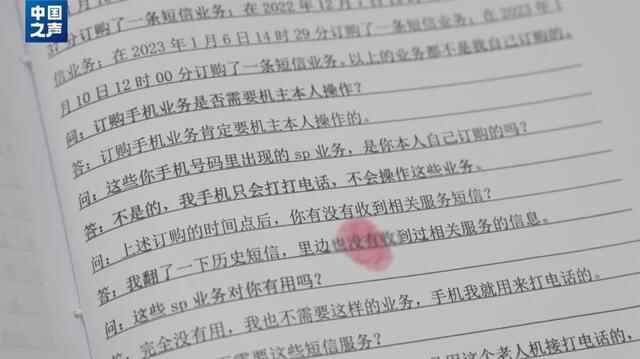 中国之声
分订购了一条短信业务；在 2022 年 12 月
信业务；在 2023 年 1 月 6 日 14 时 29 分订购了一条短信业务
月 10 日 12 时 00 分订购了一条短信业务。以上的业务都不是我自己订购的。
问：订购手机业务是否需要机主本人操作？
答：订购手机业务肯定要机主本人操作的。
问：这些你手机号码里出现的 sp 业务，是你本人自己订购的吗？
答：不是的，我手机只会打打电话，不会操作这些业务。
问：上述订购的时间点后，你有没有收到相关服务短信？
答：我翻了一下历史短信，里边也没有收到过相关服务的信息。
问：这些 sp 业务对你有用吗？
答：完全没有用，我也不需要这样的业务，手机我就用来打电话的。
需要这些短信服务？
这个老人机接打电话的，